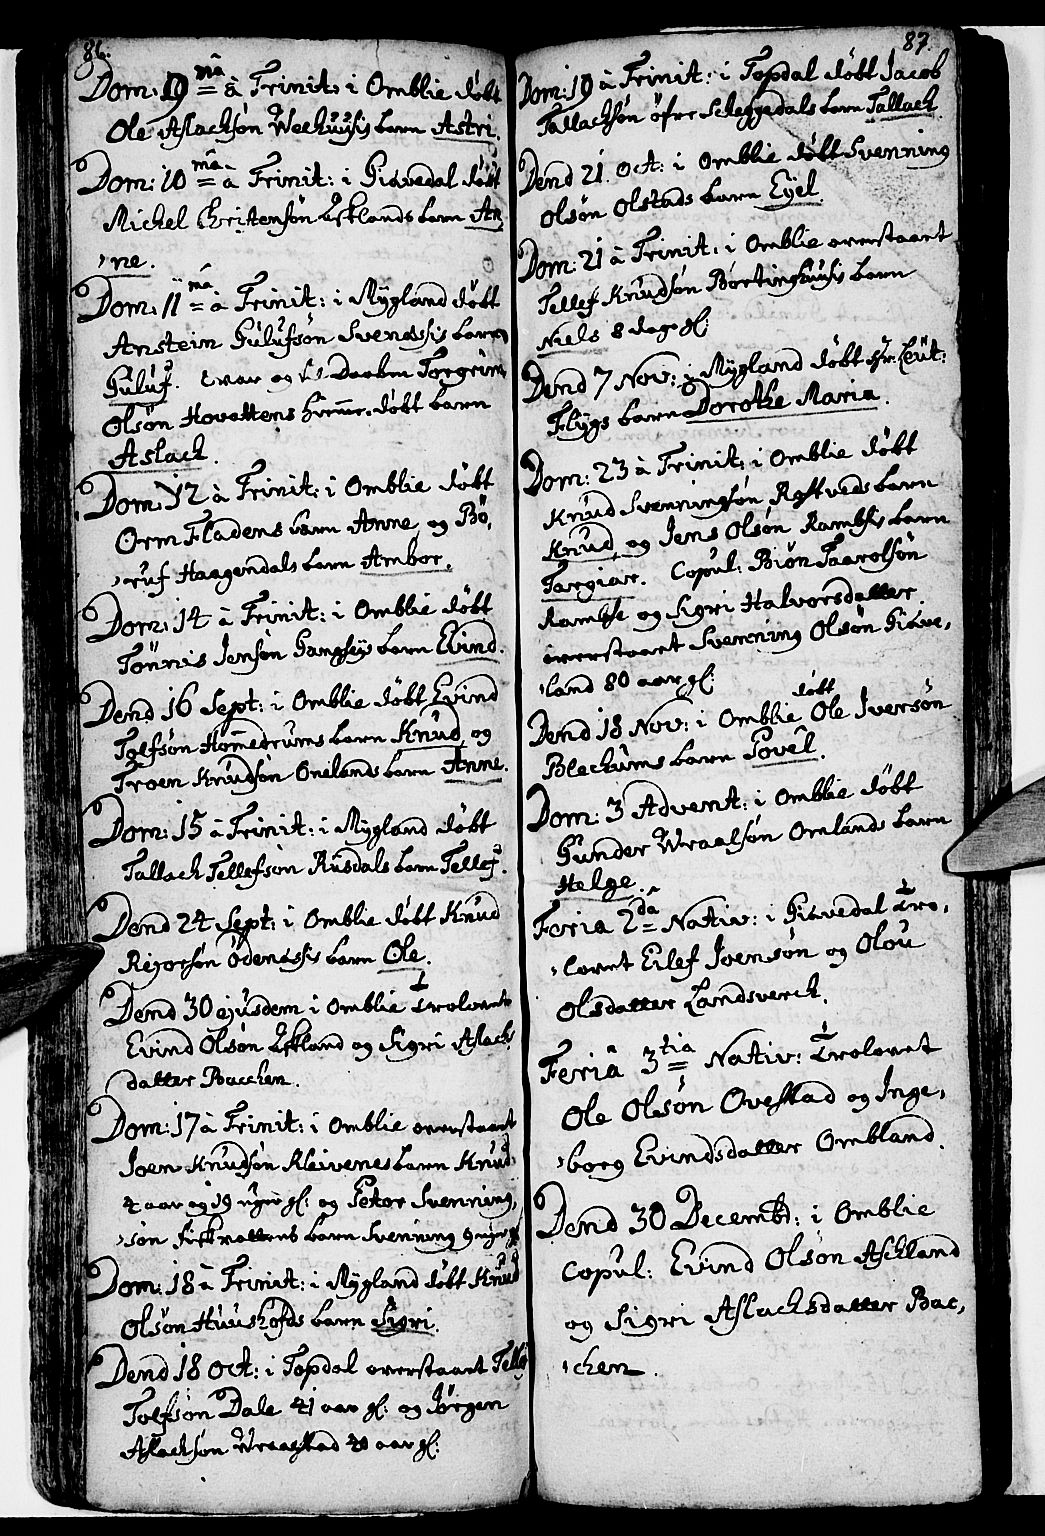 86.
Dom: 19 nâ à Trinit: i Omblie døbt
Ole Aslachsøn Weehuusis barn Astri.
Dom: 10 mâ à Trinit: i Giøvedal døbt
Michel Christensøn Eskelands barn An,
,ne.
Dom: 11 mâ à Trinit: i Mygland døbt
Anstein Gulufsøn Svenassis barn
Guluf. Torgrim
Olsøn Hovattens hiemme døbt barn
Aslach.
Dom: 12 à Trinit: i Omblie døbt
Orm Fladens barn Anne og Bö,
,ruf Haagendals barn Ambor.
Dom: 14 à Trinit: i Omblie døbt
Tönnis Jensøn Gangseys barn Evind.
Dend 16 Sept: i Omblie døbt Evind
Tolfsøn Hommedrums barn Knud og
Troen Knudsøn Onelands barn Anne.
Dom: 15 à Trinit: i Mygland døbt
Tallach Tellefsøn Rusdals barn Tellef.
Dend 24 Sept: i Omblie døbt Knud
Reiorsøn Ödenæssis barn Ole.
Dend 30 ejusdem i Omblie Trolovet
Evind Olsøn Eskland og Sigri Aslachs
datter Bacchen.
Dom: 17 à Trinit: i Omblie overstaart
Joen Knudsøn Kleivenes barn Knud
4 aar og 19 uger gl: og Petor Svenning,
,søn Fiskvattens barn Svenning 9 uger gl
Dom: 18 à Trinit: i Mygland døbt Knud
Olsøn Huushofds barn Sigri.
Dend 18 Oct: i Topdal overstaart Tellef
Tolfsøn Dale 41 aar gl: og Jörgen
Aslachsøn Wraalstad 40 aar gl:
87.
Dom: 19 à Trinit: i Topdal døbt Jacob
Tallachsøn öfre Scheggedals barn Tallach.
Dend 21. Oct: i Omblie døbt Svenning
Olsøn Olstads barn Eyel.
Dom: 21 à Trinit: i Omblie overstaart
Tellef Knudsøn Börtinghuusis barn
Niels 8 dage gl:
Dend 7 Nov: i Mygland døbt Hr: Leut:
Flygs barn Dorothe Maria.
Dom: 23 à Trinit: i Omblie døbt
Knud Svenningsøn Rostveds barn
Knud og Jens Olsøn Rambsis barn
Targiær. Copul: Biøn Taarolsøn
Rambse og Sigri Halvorsdatter
overstaart Svenning Olsøn Giøve,
,land 80 aar gl:
Dend 18 Nov: i Omblie døbt Ole Iversøn
Blechums barn Povel.
Dom: 3 Advent: i Omblie døbt
Gunder Wraalsøn Omlands barn
Helge.
Feria 2dâ Nativ: i Giøvedal Tro,
,lovet Eilef Joensøn og Olou
Olsdatter Landsverch.
Feriâ 3tia Nativ: Trolovet
Ole Olsøn Ovestad og Inge,
,borg Evindsdatter Ombland.
Dend 30 Decembr: i Omblie
Copul: Evind Olsøn Aschland
og Sigri Aslachsdatter Bac,
,chen.